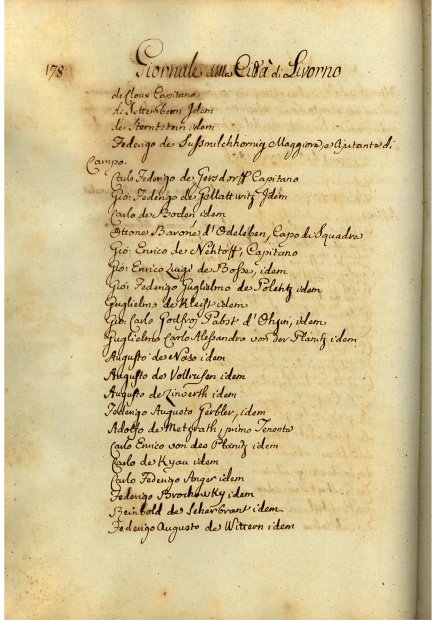 178
Giornale della Città di Livorno
de Cloux Capitano
de Tettemborn Idem
de Sterntstein idem
Federigo de Sussmilchhornig Maggiore, e Ajutante di
Campo.
Carlo Federigo de Gersdorff Capitano
Gio: Federigo de Gollattwitz Idem
Carlo de Boden idem
Ottone Barone d'Odeleben, Capo di Squadra
Gio: Enrico de Nehtoff, Capitano
Gio: Enrico Luigi de Bosse, idem
Gio: Federigo Guglielmo de Polentz idem
Guglielmo de Kleist idem
Gio: Carlo Godfroj Pabst d'Ohgin, idem
Guglielmo Carlo Alessandro von der Planitz idem
Augusto de Naso idem
Augusto de Vollrisen idem
Augusto de Linverth idem
Federigo Augusto Gerbler, idem
Adolfo de Metzrath, primo Tenente
Carlo Enrico von des Planitz idem
Carlo de Kyau idem
Carlo Federigo Anger idem
Federigo Brochowsky idem
Reinbold de Scherbrant idem
Federigo Augusto de Wittern idem